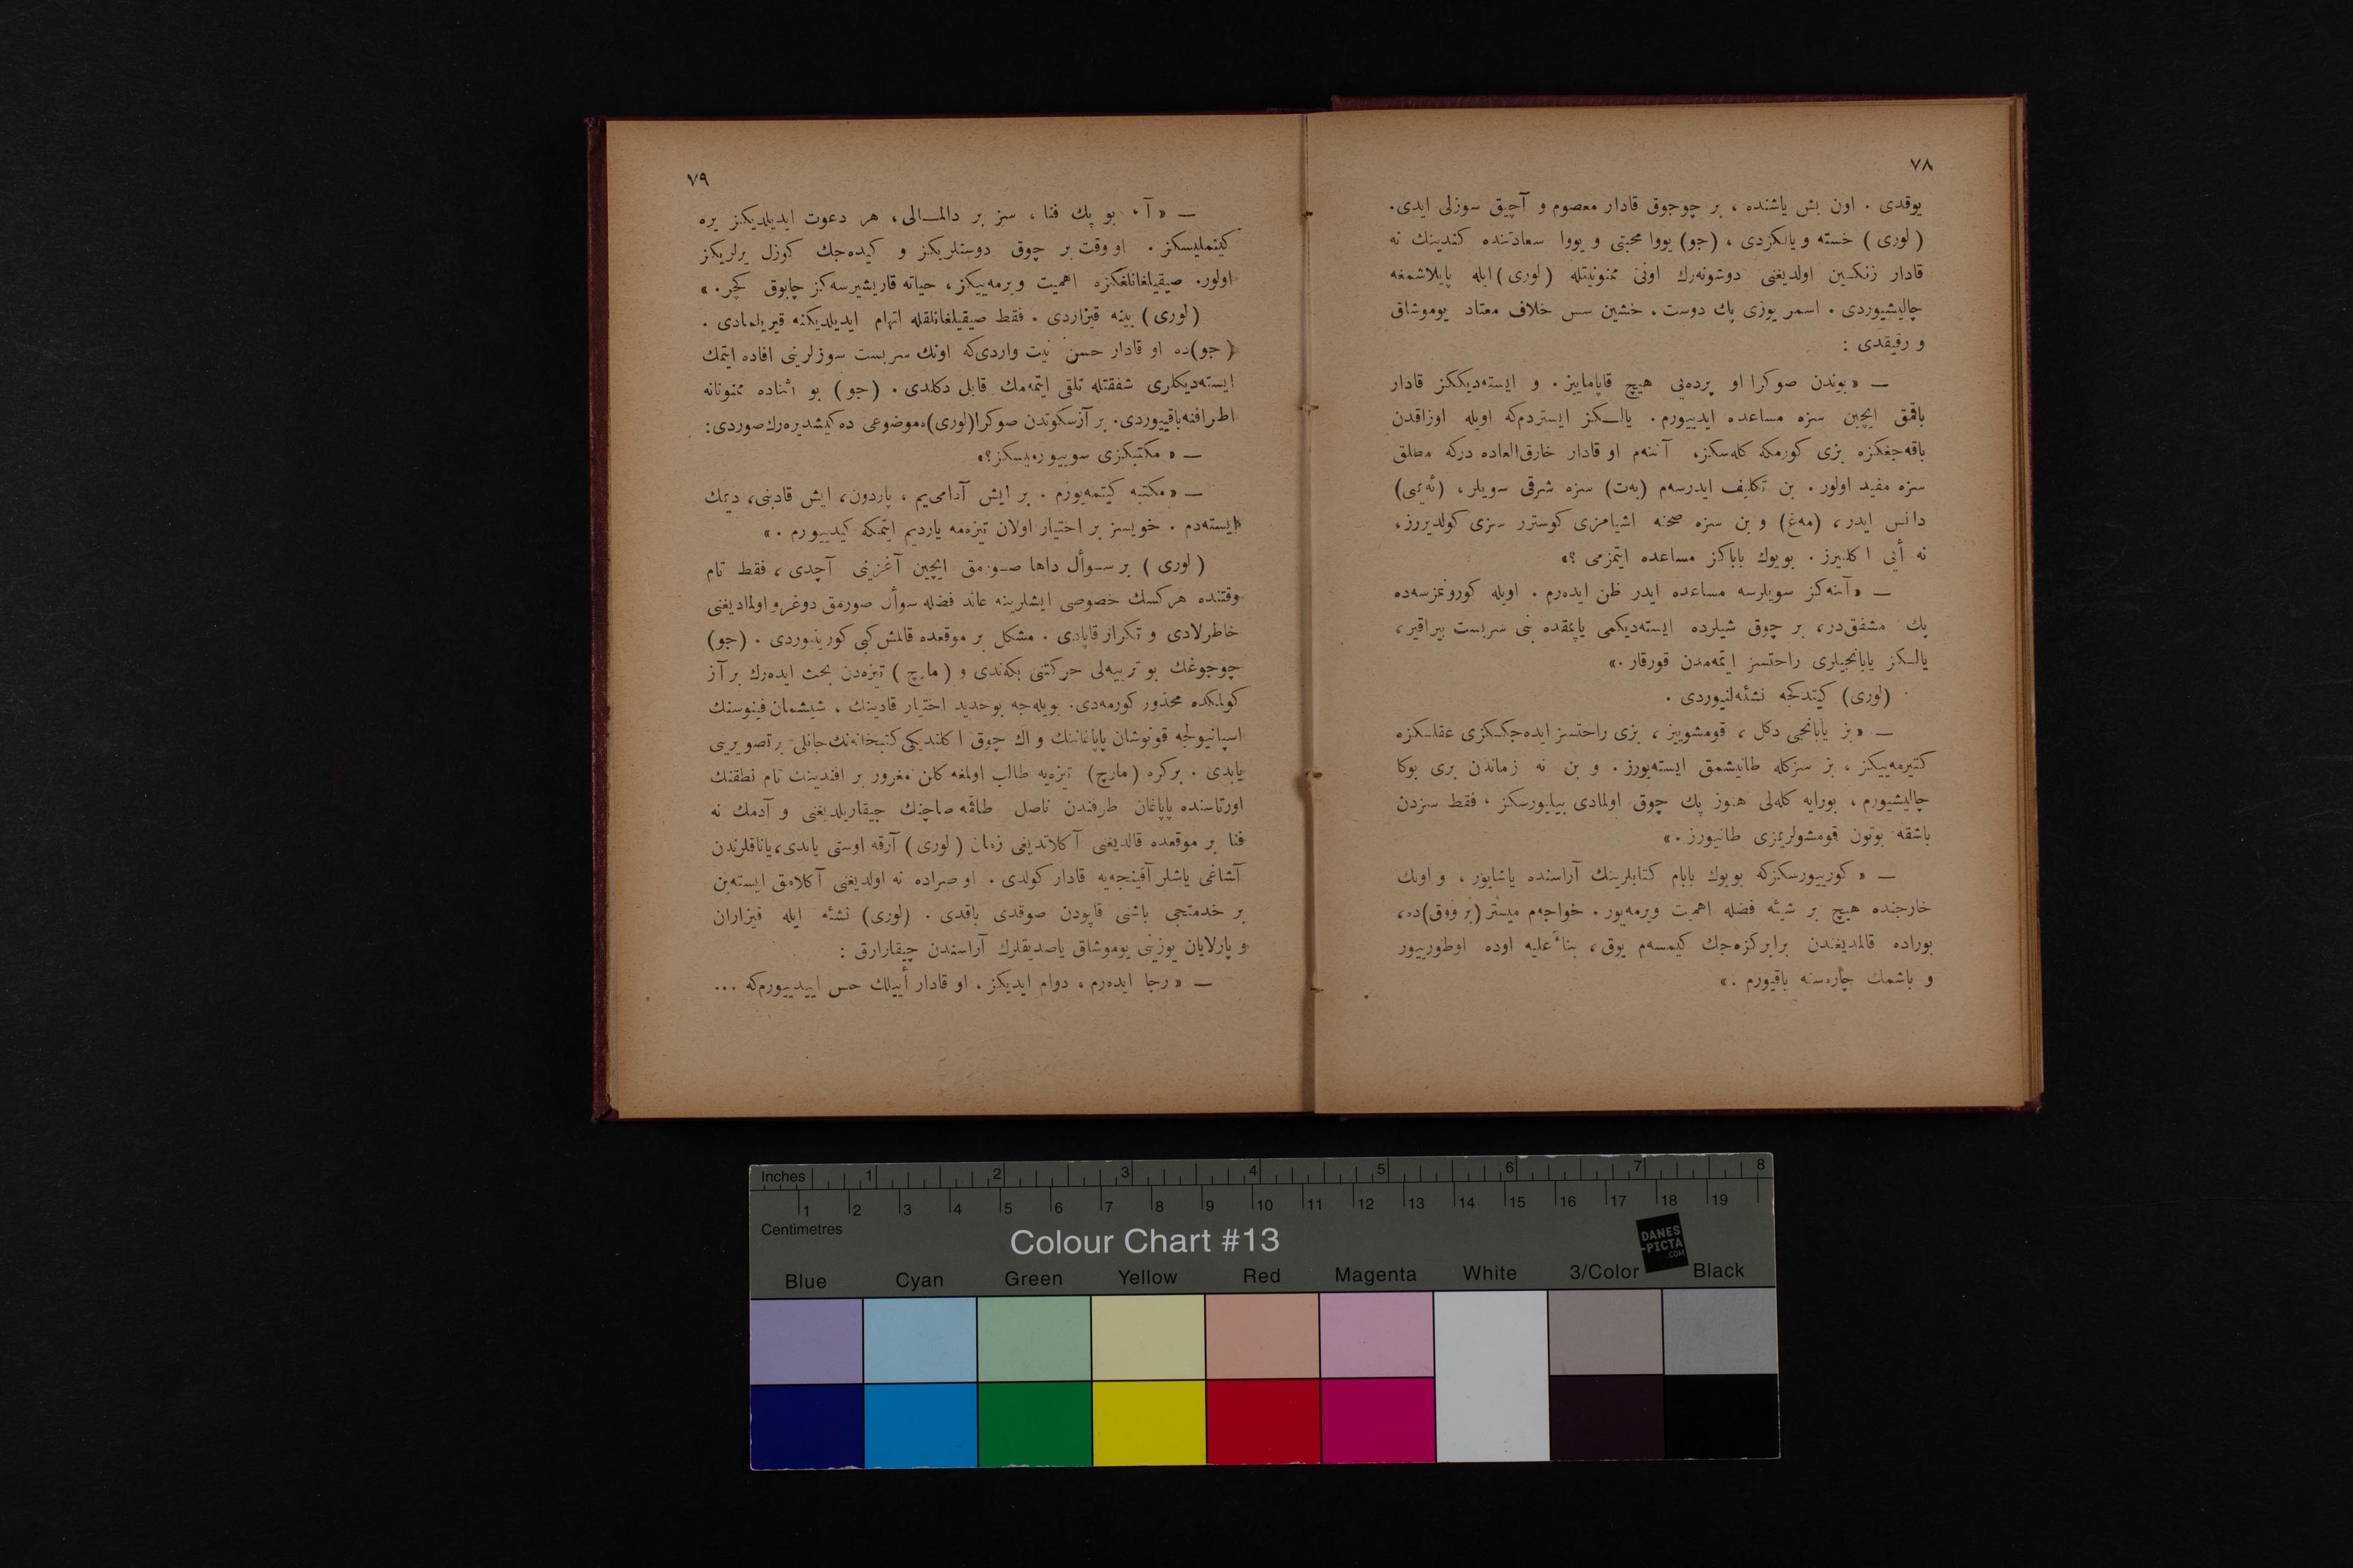 ٧٨
يوقدى . اون بش ياشنده ، بر چوجوق قادار معصوم و آچيق سوزلى ايدى.
(لورى) خسته و يالكزدى ، (جو) يووا محبتى و يووا سعادتنده كندينك نه
قادار زنكين اولديغنى دوشونه‌رك اونى ممنونيتله (لورى) ايله پايلاشمغه
چاليشيوردى . اسمر يوزى پك دوست ، خشين سس خلاف معتاد يوموشاق
و رقيقدى :
— «بوندن صوكرا او پرده‌يى هيچ قاپاماييز . و ايسته‌ديككز قادار
باقمق ايچين سزه مساعده ايدييورم . يالـكز ايستردم‌كه اويله اوزاقدن
باقه‌جغكزه بزى كورمكه كله‌سكز، آننه‌م او قادار خارق‌العاده دركه مطلق
سزه مفيد اولور . بن تكليف ايدرسه‌م (به‌ت) سزه شرقى سويلر ، (ئه‌يمى)
دانس ايدر ، (مه‌غ) و بن سزه صحنه اشيامزى كوسترر سزى كولديررز،
نه أيى اكلنيرز . بويوك باباكز مساعده ايتمزمى ؟»
— «آننه‌كز سويلرسه مساعده ايدر ظن ايده‌رم . اويله كورونمزسه‌ده
پك مشفق‌در، بر چوق شيلرده ايسته‌ديكمى ياپمقده بنى سربست بيراقير،
يالـكز يابانجيلرى راحتسز ايتمه‌مدن قورقار .»
(لورى) كيتدكجه نشئه‌لنيوردى .
— «بز يابانجى دكل ، قومشوييز ، بزى راحتسز ايده‌جكـكزى عقلـكزه
كتيرمه‌ييكز ، بز سزكله طانيشمق ايسته‌يورز. و بن نه زماندن برى بوكا
چاليشيورم ، بورايه كله‌لى هنوز پك چوق اولمادى بيليورسكز ، فقط سزدن
باشقه بوتون قومشولريمزى طانيورز .»
— «كورييورسكزكه بويوك بابام كتابلرينك آراسنده ياشايور ، و اونك
خارجنده هيچ بر شيئه فضله اهميت ويرمه‌يور . خواجه‌م ميستر (بروق)ده،
بوراده قالمديغندن برابر كزه‌جك كيمسه‌م يوق، بناءً عليه اوده اوطورييور
و باشمك چاره‌سنه باقيورم .»
٧٩
— «آ ، بو پك فنا ، سز بر دالمـالى، هر دعوت ايديلديكز يره
كيتمليسكز . او وقت بر چوق دوستلريكز و كيده‌جك كوزل يرلريكز
اولور. صيقيلغانلغكزه اهميت ويرمه‌ييكز، حياته قاريشيرسه‌كز چابوق كچر.»
(لورى) يينه قيزاردى . فقط صيقيلغانلقله اتهام ايديلديكنه قيريلمادى .
(جو)ده او قادار حسن نيت واردى‌كه اونك سربست سوزلرينى افاده ايتمك
ايسته‌ديكلرى شفقتله تلقى ايتمه‌مك قابل دكلدى . (جو) بو اثناده ممنونانه
اطرافنه‌باقييوردى. بر آزسكوتدن صوكرا(لورى)موضوعى ده‌كيشديره‌رك‌صوردى:
— «مكتبكزى سوييورميسكز؟»
— «مكتبه كيتمه‌يورم . بر ايش آدامى‌يم ، پاردون، ايش قادينى، ديمك
ايسته‌دم . خويسز بر اختيار اولان تيزه‌مه يارديم ايتمكه كيدييورم .»
(لورى) بر سـوأل داها صـورمق ايچين آغزينى آچدى ، فقط تام
وقتنده هركسك خصوصى ايشلرينه عائد فضله سوأل صورمق دوغرو اولماديغنى
خاطرلادى و تكرار قاپادى . مشكل بر موقعده قالمش كبى كورينيوردى . (جو)
چوجوغك بو تربيه‌لى حركتنى بكه‌ندى و (مارچ) تيزه‌دن بحث ايده‌رك بر آز
كولمكده محذور كورمه‌دى. بويله‌جه بوحديد اختيار قادينك ، شيشمان فينوسنك
اسپانيولجه قونوشان پاپاغاننك و اك چوق اكلنديكى كتبخانه‌نك جانلى بر تصويرينى
ياپدى . بركره (مارچ) تيزه‌يه طالب اولمغه كلن مغرور بر افندينك تام نطقنك
اورتاسنده پاپاغان طرفندن ناصل طاقمه صاچنك چيقاريلديغنى و آدمك نه
فنا بر موقعده قالديغنى آكلاتديغى زمان (لورى) آرقه اوستى ياتدى،ياناقلرندن
آشاغى ياشلر آقينجه‌يه قادار كولدى . او صراده نه اولديغنى آكلامق ايسته‌ين
بر خدمتجى باشنى قاپودن صوقدى باقدى . (لورى) نشئه ايله قيزاران
و پارلايان يوزينى يوموشاق ياصديقلرك آراسندن چيقارارق :
— «رجا ايده‌رم ، دوام ايديكز ، او قادار أييلك حس ايدييورم‌كه ...
Inches 1 2 3 4 5 6 7 8
1 2 3 4 5 6 7 8 9 10 11 12 13 14 15 16 17 18 19
Centimetres
Colour Chart #13
DANES
-PICTA
.COM
Blue Cyan Green Yellow Red Magenta White 3/Color Black